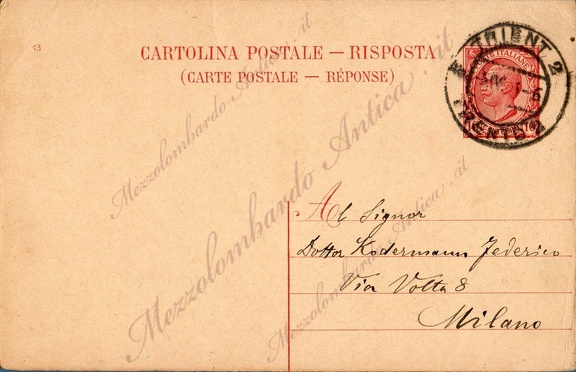 13
CARTOLINA POSTALE — RISPOSTA
(CARTE POSTALE — RÉPONSE)
TRIENT 2
TRENTO 2
Al Signor
Dottor Kodermann Federico
Via Volta 8
Milano
Mezzolombardo Antica.it
Mezzolombardo Antica.it
Mezzolombardo Antica.it